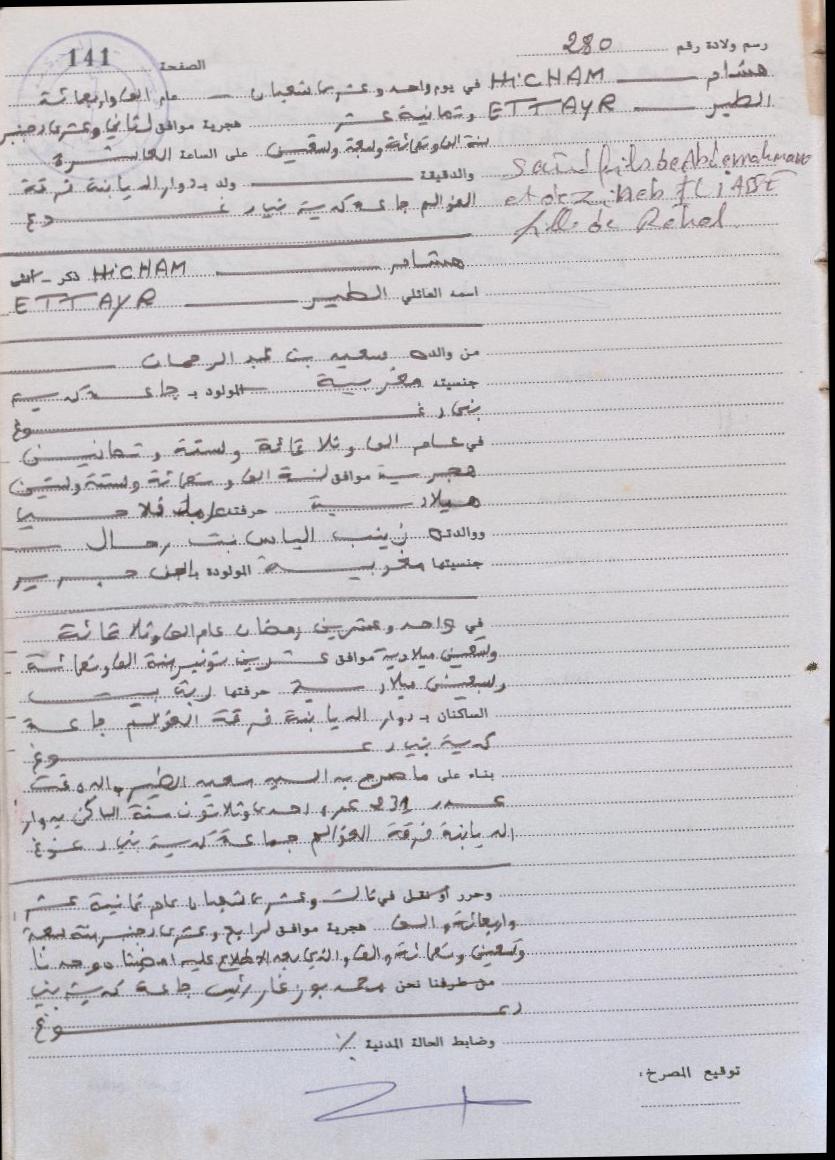 الصفحة 141
رسم ولادة رقم 280
هشام HiCHAM في يوم واحد وعشرين شعبان عام الف واربعمائة
الطير ETTAYR وثمانية عشر هجرية موافق لثاني وعشرين دجنبر
سنة الف وتسعمائة وسبعة وتسعين على الساعة العاشرة
والدقيقة ولد بدوار الديابنة فرقة
العوالم جماعة كدية بني دغوغ
Said fils de Abderrahmane
et de Zineb ILIASSE
fille de Rahal
هشام HiCHAM ذكر - أنثى
اسمه العائلي الطير ETTAYR
من والده سعيد بن عبد الرحمان
جنسيته مغربية المولود بـ جماعة كدية
بني دغوغ
في عام الف وثلاثمائة وستة وثمانين
هجرية موافق لسنة الف وتسعمائة وستة وستين
ميلادية حرفته عامل فلاحيا
ووالدته زينب الياس بنت رحال
جنسيتها مغربية المولودة بـ
في واحد وعشرين رمضان عام الف وثلاثمائة
وتسعين ميلادية موافق عشرين نونبر سنة الف وتسعمائة
وسبعين ميلادية حرفتها ربة بيت
الساكنان بـ دوار الديابنة فرقة العوالم جماعة
كدية بني دغوغ
بناء على ما صرح به السيد سعيد الطير والده
عمره احدى وثلاثون سنة الساكن بدوار
الديابنة فرقة العوالم جماعة كدية بني دغوغ
وحرر أو نقل في ثالث وعشرين شعبان عام ثمانية عشر
واربعمائة والف هجرية موافق لرابع وعشرين دجنبر سنة سبعة
وتسعين وتسعمائة والف والذي بعد الاطلاع عليه امضيناه وحدنا
من طرفنا نحن محمد بورغار رئيس جماعة كدية بني
دغوغ
وضابط الحالة المدنية ./.
توقيع المصرح :